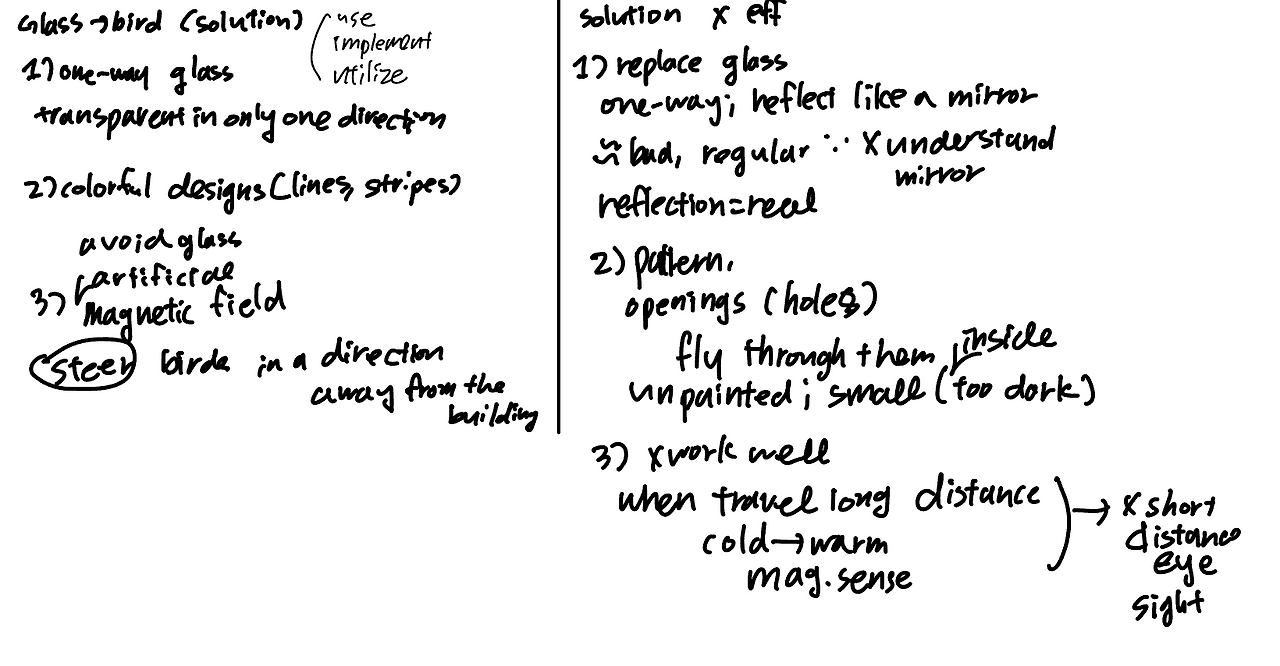 Glass → bird (solution)
use
implement
utilize
1) one-way glass
transparent in only one direction
2) colorful designs (lines, stripes)
avoid glass
artificial
3) Magnetic field
steer birds in a direction
away from the
building
solution x eff
1) replace glass
one-way; reflect like a mirror
≈ bad, regular ∵ x understand
mirror
reflection = real
2) pattern.
openings (holes)
fly through them inside
unpainted ; small (too dark)
3) x work well
when travel long distance → x short
distance
cold → warm
eye
mag. sense
sight